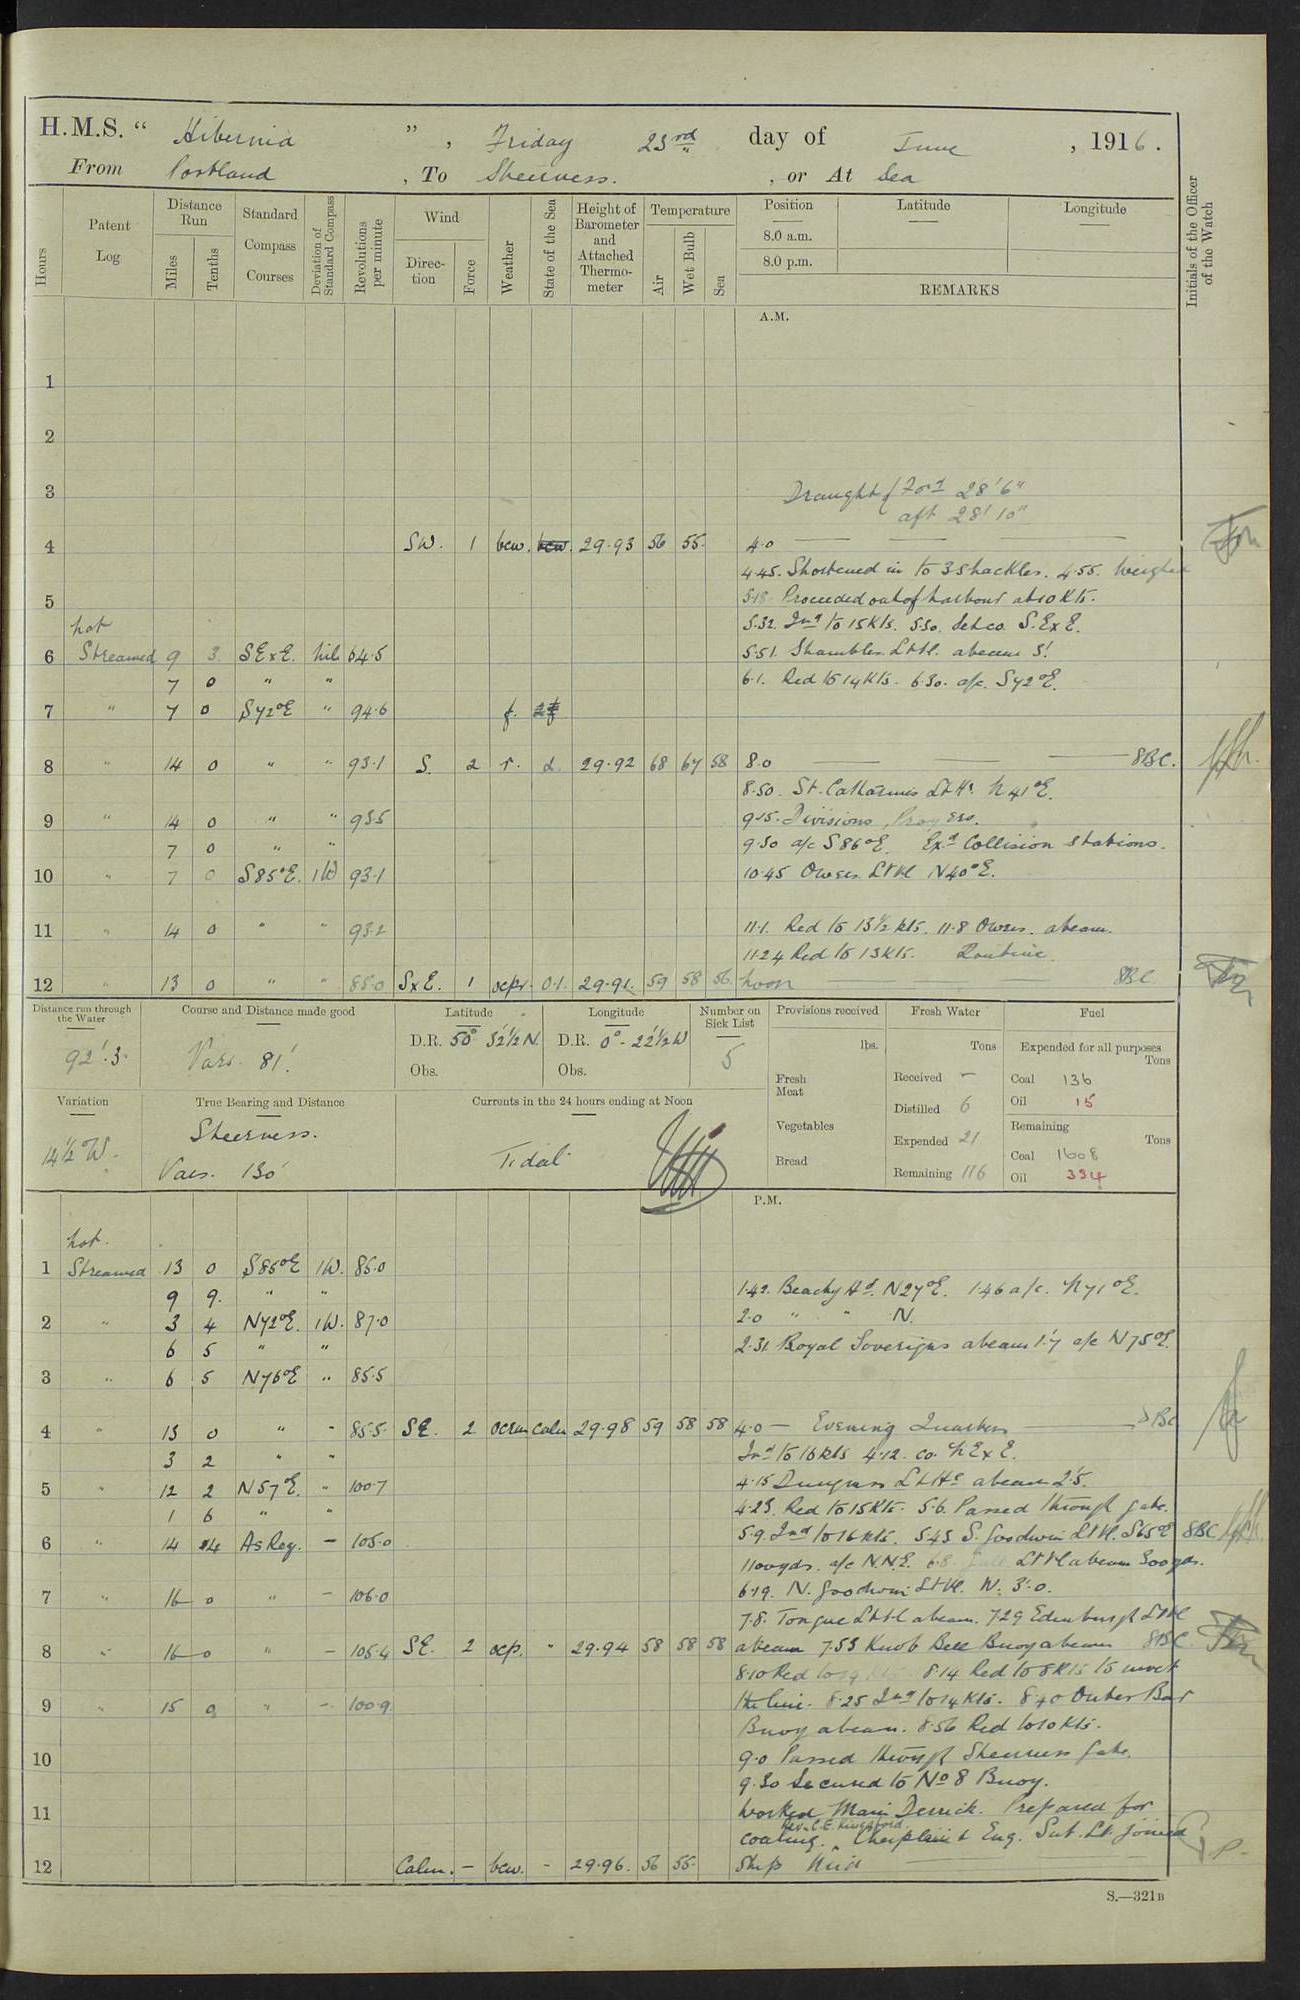 H.M.S. " Hibernia ", Friday 23rd day of June, 1916.
From Portland, To Sheerness., or At Sea
Hours
Patent Log
Distance Run
Miles
Tenths
Standard Compass Courses
Deviation of Standard Compass
Revolutions per minute
Wind
Direction
Force
Weather
State of the Sea
Height of Barometer and Attached Thermometer
Temperature
Air
Wet Bulb
Sea
Position
8.0 a.m.
8.0 p.m.
Latitude
Longitude
REMARKS
Initials of the Officer of the Watch
A.M.
1
2
3
Draught { Ford 28' 6"
aft 28' 10"
4 SW. 1 bcw. 29.93 56 55. 4.0
4.45. Shortened in to 3 shackles. 4.55. Weighed
5
5.18. Proceeded out of harbour at 10 Kts.
not
5.32. Incd to 15 Kts. 5.50. Set co. S.ExE.
6 Streamed 9 3 SExE. nil 64.5 5.51. Shambles Lt Vl. abeam 5'.
7 0 " " 6.1. Red to 14 Kts. 6.30. a/c. S72°E.
7 " 7 0 S72°E " 94.6 f.
8 " 14 0 " " 93.1 S. 2 r. 2. 29.92 68 67 58 8.0 8BC.
8.50. St. Catharines Lt Hs. N41°E.
9 " 14 0 " " 93.5 9.15. Divisions, Prayers.
7 0 " " 9.30 a/c S86°E. Exd Collision Stations.
10 " 7 0 S85°E. 1W 93.1 10.45 Owers Lt Vl N40°E.
11 " 14 0 " " 93.2 11.1. Red to 13½ kts. 11.8 Owers. abeam.
11.24 Red to 13 Kts. Routine.
12 " 13 0 " " 85.0 SxE. 1 ocpr. 0.1. 29.91. 59 58 56. Noon 8BC
Distance run through the Water
92'.3.
Course and Distance made good
Vars. 81'.
Latitude
D.R. 50° 32'½ N.
Obs.
Longitude
D.R. 0° - 22'½ W
Obs.
Number on Sick List
5
Provisions received
lbs.
Fresh Meat
Vegetables
Bread
Fresh Water
Tons
Received -
Distilled 6
Expended 21
Remaining 116
Fuel
Expended for all purposes
Tons
Coal 136
Oil 15
Remaining
Tons
Coal 1608
Oil 334
Variation
14½ W.
True Bearing and Distance
Sheerness.
Vars. 130'
Currents in the 24 hours ending at Noon
Tidal
P.M.
not.
1 Streamed 13 0 S85°E 1W. 85.0
9 9. " " 1.42. Beachy Hd. N27°E. 1.46 a/c. N71°E.
2 " 3 4 N72°E. 1W. 87.0 2.0 " " N.
6 5 " " 2.31. Royal Soverigns abeam 1'.7 a/c N75°E.
3 " 6 5 N76°E " 85.5
4 " 13 0 " " 85.5. SE. 2 ocrm calm 29.98 59 58 58 4.0 - Evening Quarters 8BC
3 2 " " Incd to 16 kts 4.12. co. NExE.
5 " 12 2 N57°E. " 100.7 4.15 Dungness Lt Hse abeam 2'.5.
1 6 " " 4.23. Red to 15 Kts. 5.6. Passed through gate.
6 " 14 4 As Req. - 105.0 5.9. Incd to 16 kts. 5.43 S. Goodwin Lt Vl. S65°E 8BC
1100 yds. a/c N.N.E. 6.8. Gull Lt Vl abeam 300 yds.
7 " 16 0 " - 106.0 6.19. N. Goodwin Lt Vl. W. 3'.0.
7.8. Tongue Lt Vl abeam. 7.29 Edinburgh Lt Vl
8 " 16 0 " - 105.4 SE. 2 ocp. " 29.94 58 58 58 abeam 7.53 Knob Bell Buoy abeam 8BC.
8.10 Red to 8.14 Red to 8 Kts to work
9 " 15 9 " - 100.9 the line. 8.25 Incd to 14 Kts. 8.40 Outer Bar
Buoy abeam. 8.56 Red to 10 Kts.
10 9.0 Passed through Sheerness Gate.
9.30 Secured to No 8 Buoy.
11 Worked Main Derrick. Prepared for
coaling. Rev. C.E. Chaplain & Eng. Sub. Lt. joined
12 Calm. - bcw. - 29.96. 56 55. Ship Mid
S.—321B